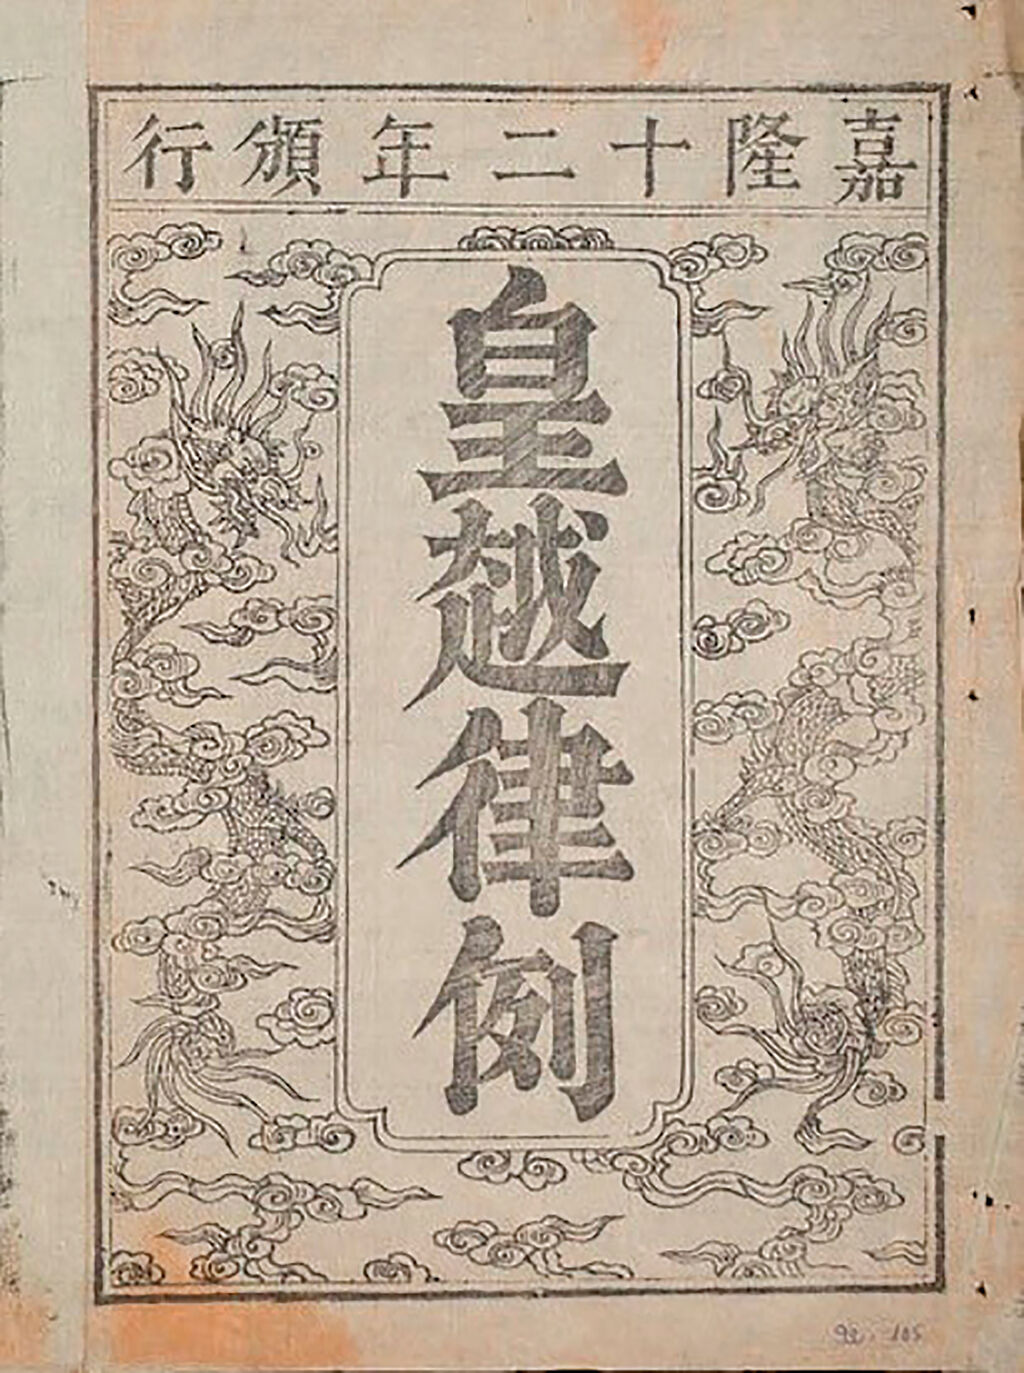 嘉隆十二年頒行
皇越律例
92.105